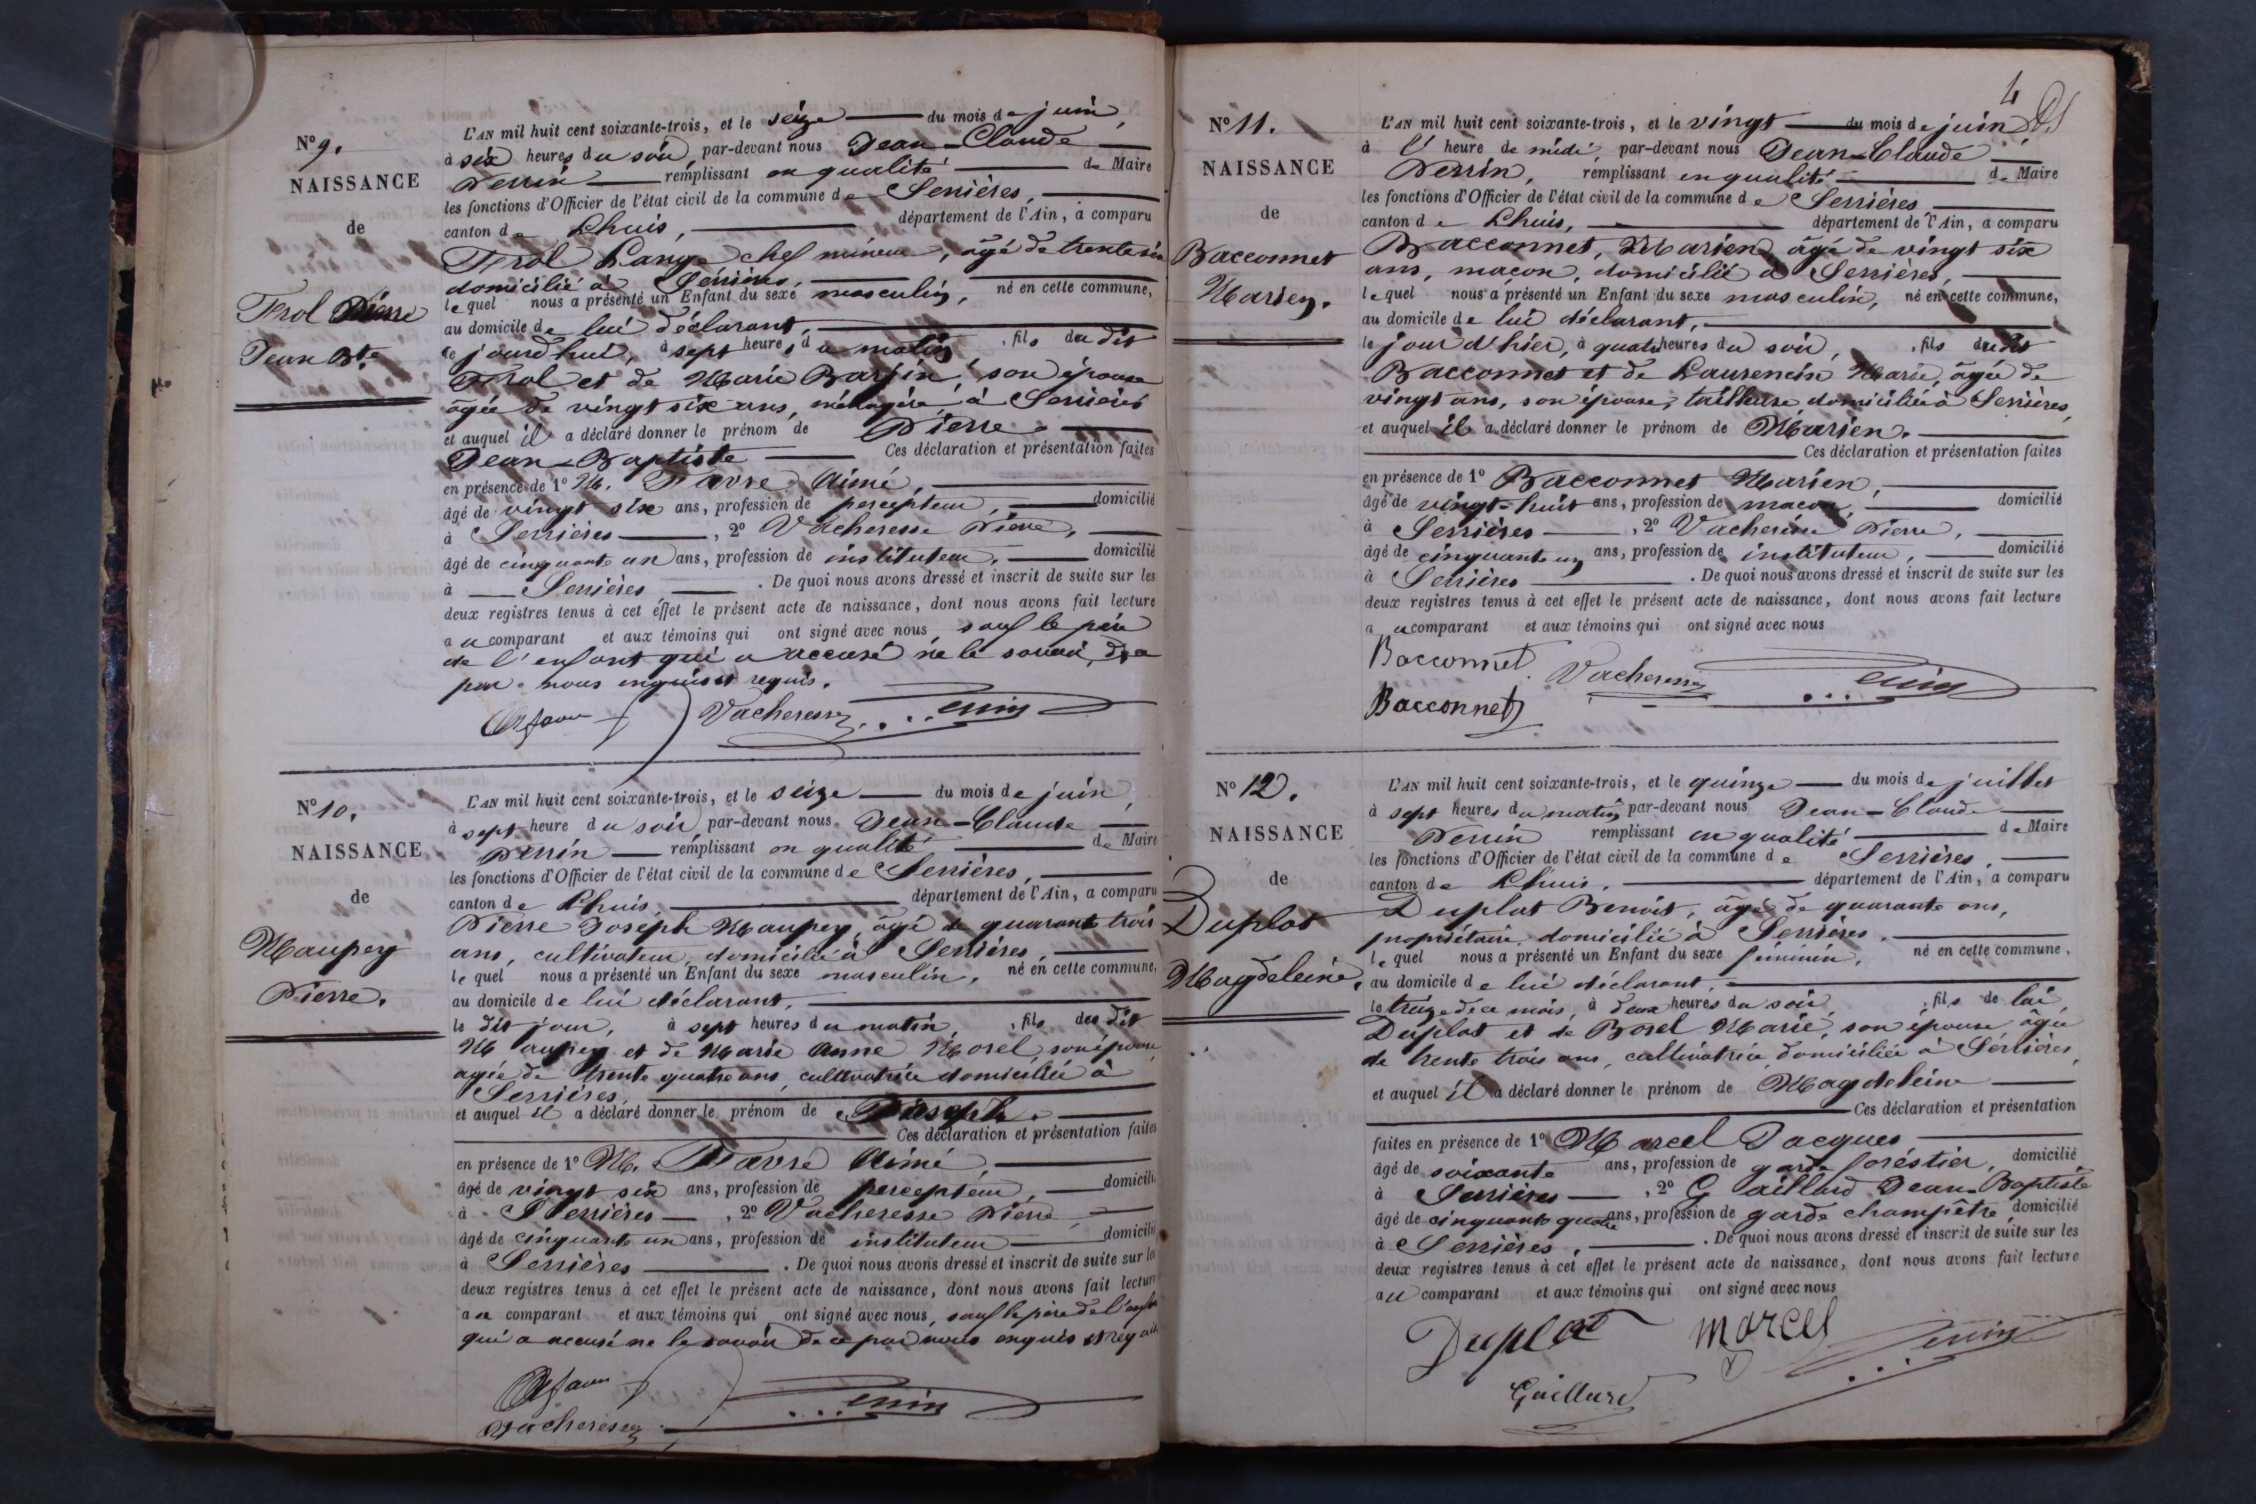 N° 9.
NAISSANCE
de
Frol Pierre
Jean Bte
L'AN mil huit cent soixante-trois, et le seize du mois de juin,
à six heures du soir, par-devant nous Jean-Claude
Perrin remplissant en qualité de Maire
les fonctions d'Officier de l'état civil de la commune de Serrières,
canton de Lhuis, département de l'Ain, a comparu
Frol Lange chef mineur, âgé de trente six
domicilié à Serrières,
lequel nous a présenté un Enfant du sexe masculin, né en cette commune,
au domicile de lui déclarant,
ce jourd'hui, à sept heures du matin, fils du dit
Frol et de Marie Barjin, son épouse
âgée de vingt six ans, ménagère à Serrières
et auquel il a déclaré donner le prénom de Pierre
Jean-Baptiste Ces déclaration et présentation faites
en présence de 1° M. Favre Aimé,
âgé de vingt six ans, profession de percepteur, domicilié
à Serrières, 2° Vacheresse Pierre,
âgé de cinquante un ans, profession de instituteur, domicilié
à Serrières. De quoi nous avons dressé et inscrit de suite sur les
deux registres tenus à cet effet le présent acte de naissance, dont nous avons fait lecture
au comparant et aux témoins qui ont signé avec nous, sauf le père
de l'enfant qui a accusé ne le savoir, de ce
par nous enquis et requis.
Vacheresse Perrin
N° 10.
NAISSANCE
de
Maupey
Pierre.
L'AN mil huit cent soixante-trois, et le seize du mois de juin,
à sept heure du soir par-devant nous Jean-Claude
Perrin remplissant en qualité de Maire
les fonctions d'Officier de l'état civil de la commune de Serrières,
canton de Lhuis, département de l'Ain, a comparu
Pierre Joseph Maupey, âgé de quarante trois
ans, cultivateur, domicilié à Serrières,
lequel nous a présenté un Enfant du sexe masculin, né en cette commune,
au domicile de lui déclarant,
le dit jour, à sept heures du matin, fils des dit
Maupey et de Marie Anne Morel, son épouse
agée de trente quatre ans, cultivatrice domiciliée à
Serrières,
et auquel il a déclaré donner le prénom de Joseph.
Ces déclaration et présentation faites
en présence de 1° M. Favre Aimé,
âgé de vingt six ans, profession de percepteur, domicilié
à Serrières, 2° Vacheresse Pierre,
âgé de cinquante un ans, profession de instituteur domicilié
à Serrières. De quoi nous avons dressé et inscrit de suite sur les
deux registres tenus à cet effet le présent acte de naissance, dont nous avons fait lecture
au comparant et aux témoins qui ont signé avec nous, sauf le père de l'enfant
qui a accusé ne le savoir de ce par nous enquis et requis
Perrin
Vacheresse
4
N° 11.
NAISSANCE
de
Bacconnet
Marien.
L'AN mil huit cent soixante-trois, et le vingt du mois de juin
à l' heure de midi, par-devant nous Jean-Claude
Perrin, remplissant en qualité de Maire
les fonctions d'Officier de l'état civil de la commune de Serrières
canton de Lhuis, département de l'Ain, a comparu
Bacconnet, Marien, âgé de vingt six
ans, maçon, domicilié à Serrières,
lequel nous a présenté un Enfant du sexe masculin, né en cette commune,
au domicile de lui déclarant,
le jour d'hier, à quatre heures du soir, fils du dit
Bacconnet et de Laurencin Marie, âgée de
vingt ans, son épouse, tailleuse domiciliée à Serrières,
et auquel il a déclaré donner le prénom de Marien.
Ces déclaration et présentation faites
en présence de 1° Bacconnet Marien,
âgé de vingt-huit ans, profession de maçon, domicilié
à Serrières, 2° Vacheresse Pierre,
âgé de cinquante un ans, profession de instituteur, domicilié
à Serrières. De quoi nous avons dressé et inscrit de suite sur les
deux registres tenus à cet effet le présent acte de naissance, dont nous avons fait lecture
au comparant et aux témoins qui ont signé avec nous
Bacconnet Vacheresse Perrin
Bacconnet
N° 12.
NAISSANCE
de
Duplot
Magdeleine.
L'AN mil huit cent soixante-trois, et le quinze du mois de juillet
à sept heures du matin par-devant nous Jean-Claude
Perrin remplissant en qualité de Maire
les fonctions d'Officier de l'état civil de la commune de Serrières,
canton de Lhuis, département de l'Ain, a comparu
Duplat Benoit, âgé de quarante ans,
propriétaire, domicilié à Serrières.
lequel nous a présenté un Enfant du sexe féminin, né en cette commune,
au domicile de lui déclarant,
le treize de ce mois, à deux heures du soir, fils de lui
Duplat et de Borel Marie, son épouse âgée
de trente trois ans, cultivatrice domiciliée à Serrières,
et auquel il a déclaré donner le prénom de Magdeleine
Ces déclaration et présentation
faites en présence de 1° Marcel Jacques
âgé de soixante ans, profession de garde foréstier, domicilié
à Serrières, 2° Gaillard Jean-Baptiste
âgé de cinquante quatre ans, profession de garde champêtre domicilié
à Serrières. De quoi nous avons dressé et inscrit de suite sur les
deux registres tenus à cet effet le présent acte de naissance, dont nous avons fait lecture
au comparant et aux témoins qui ont signé avec nous
Duplat Marcel Perrin
Gaillard